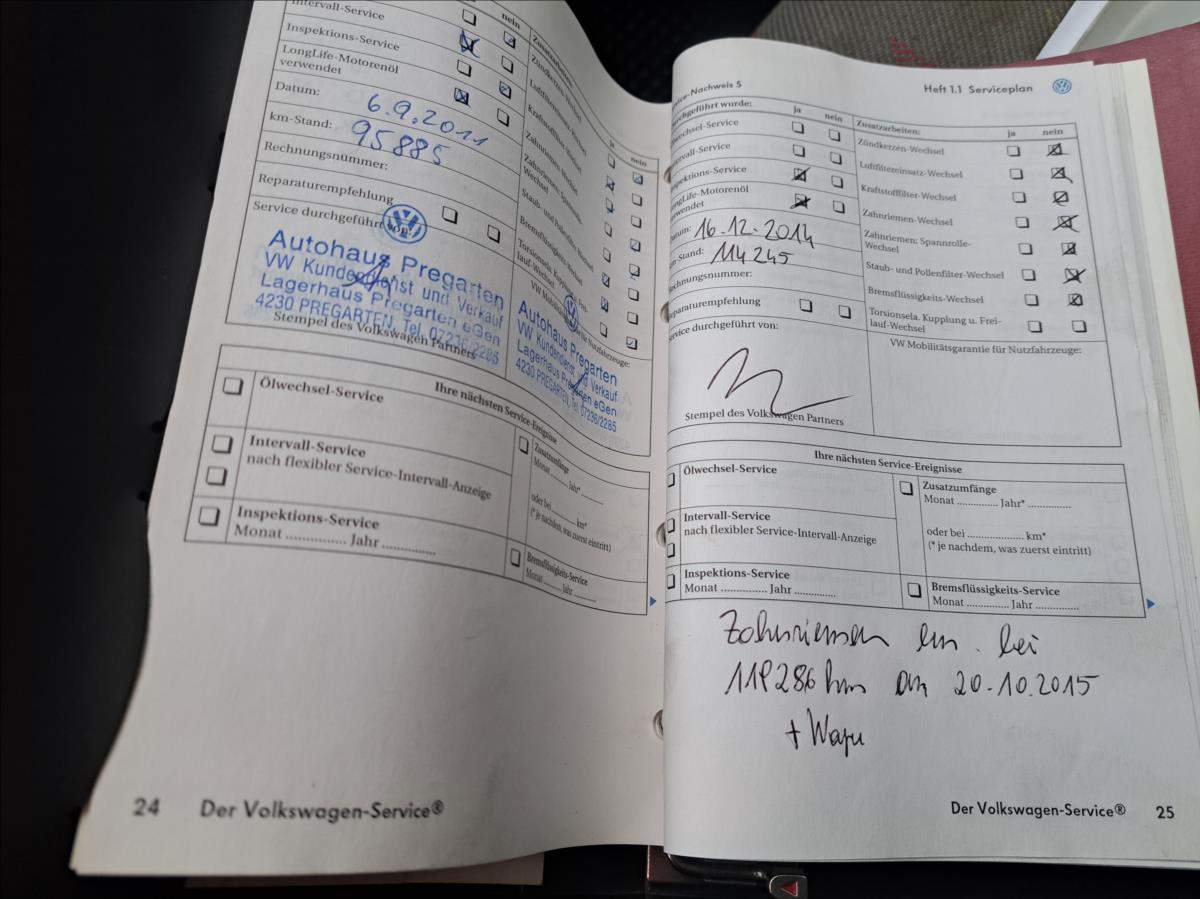 Intervall-Service
nein
Inspektions-Service
LongLife-Motorenöl
verwendet
Datum: 6.9.2011
km-Stand: 95885
Rechnungsnummer:
Reparaturempfehlung
Service durchgeführt von:
Autohaus Pregarten
VW Kundendienst und Verkauf
Lagerhaus Pregarten eGen
4230 PREGARTEN, Tel. 07236/2285
Stempel des Volkswagen Partners
Zusatzarbeiten:
ja nein
Zündkerzen-Wechsel
Luftfiltereinsatz-Wechsel
Kraftstofffilter-Wechsel
Zahnriemen-Wechsel
Zahnriemen: Spannrolle-
Wechsel
Staub- und Pollenfilter-Wechsel
Bremsflüssigkeits-Wechsel
Torsionsela. Kupplung u. Frei-
lauf-Wechsel
VW Mobilitätsgarantie für Nutzfahrzeuge:
Autohaus Pregarten
VW Kundendienst und Verkauf
Lagerhaus Pregarten eGen
4230 PREGARTEN, Tel. 07236/2285
Ihre nächsten Service-Ereignisse
Ölwechsel-Service
Intervall-Service
nach flexibler Service-Intervall-Anzeige
Inspektions-Service
Monat ............... Jahr .............
Zusatzumfänge
Monat ........ Jahr* ........
oder bei .......... km*
(* je nachdem, was zuerst eintritt)
Bremsflüssigkeits-Service
Monat ........ Jahr ........
24 Der Volkswagen-Service®
Service-Nachweis 5
Heft 1.1 Serviceplan
durchgeführt wurde: ja nein
Ölwechsel-Service
Intervall-Service
Inspektions-Service
LongLife-Motorenöl
verwendet
Datum: 16.12.2014
km-Stand: 114245
Rechnungsnummer:
Reparaturempfehlung
Service durchgeführt von:
Stempel des Volkswagen Partners
Zusatzarbeiten: ja nein
Zündkerzen-Wechsel
Luftfiltereinsatz-Wechsel
Kraftstofffilter-Wechsel
Zahnriemen-Wechsel
Zahnriemen: Spannrolle-
Wechsel
Staub- und Pollenfilter-Wechsel
Bremsflüssigkeits-Wechsel
Torsionsela. Kupplung u. Frei-
lauf-Wechsel
VW Mobilitätsgarantie für Nutzfahrzeuge:
Ihre nächsten Service-Ereignisse
Ölwechsel-Service
Intervall-Service
nach flexibler Service-Intervall-Anzeige
Inspektions-Service
Monat .............. Jahr ............
Zusatzumfänge
Monat ............. Jahr* .............
oder bei .................. km*
(* je nachdem, was zuerst eintritt)
Bremsflüssigkeits-Service
Monat ............. Jahr .............
Zahnriemen ern. bei
119286 km am 20.10.2015
+ Wapu
Der Volkswagen-Service® 25